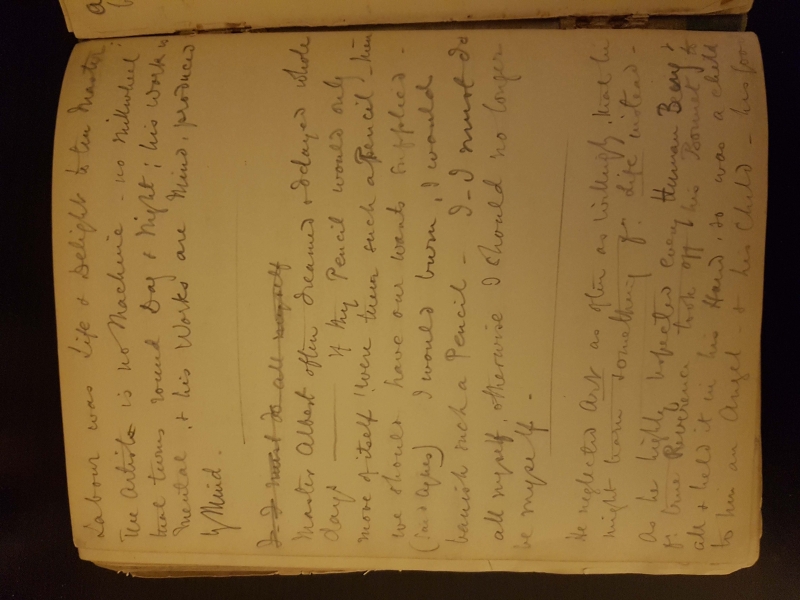 Labour was Life & Delight to the Master;
The Artist is no Machine - no Millwheel
that turns round Day & Night; his Work is
Mental & his Works are Mind, produced
by Mind.
I - I must do all myself
Master Albert often dreamed & delayed whole
days — If thy Pencil would only
move of itself! were there such a Pencil - then
we should have our wants supplied -
(said Agnes) I would burn, I would
banish such a Pencil - I - I must do
all myself, otherwise I should no longer
be myself.
He neglected Art as often as willingly, that he
might learn something for Life instead -
As he highly respected every Human Being &
for true Reverence took off his Bonnet to
all & held it in his Hand, so was a child
to him an Angel - & his Child - his